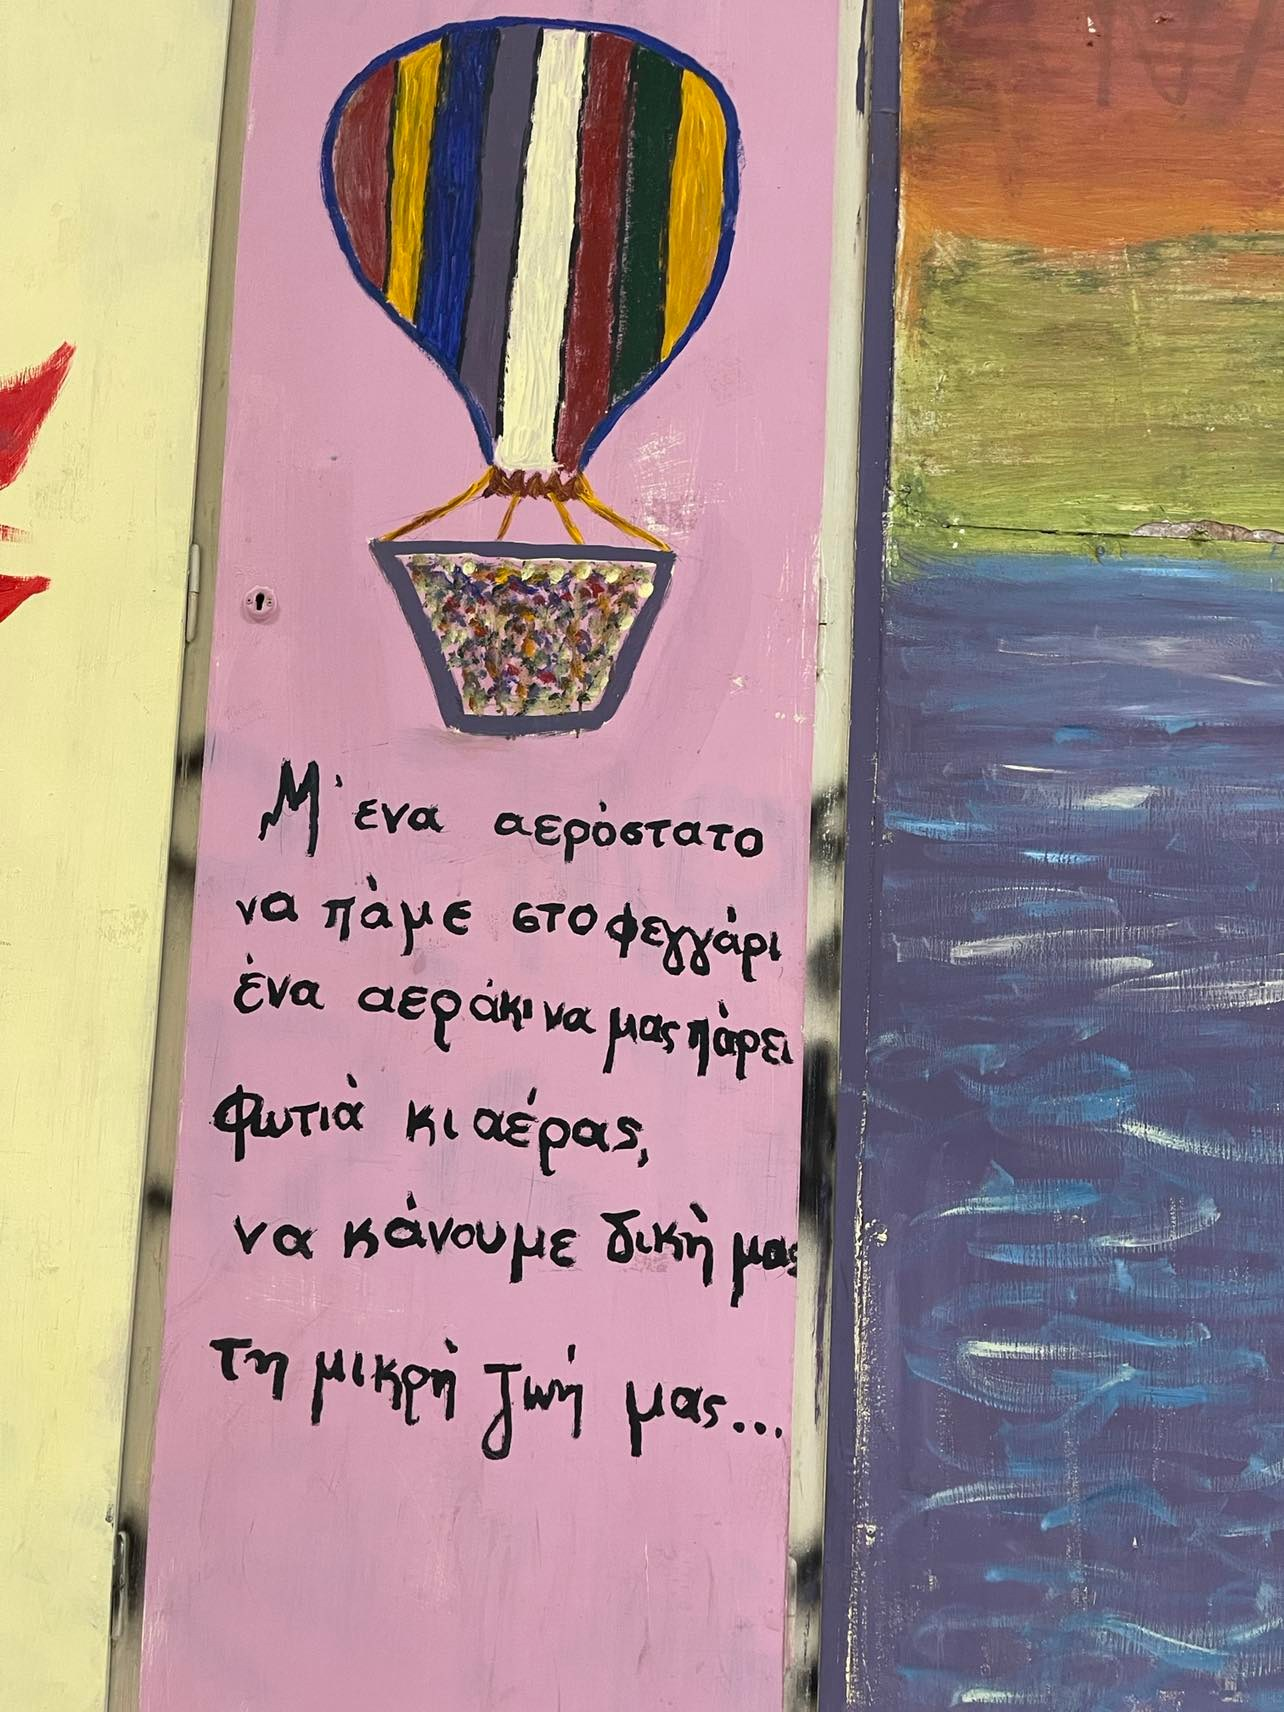 Μ' ενα αερόστατο
να πάμε στο φεγγάρι
ένα αεράκι να μας πάρει
Φωτιά κι αέρας,
να κάνουμε δική μας
τη μικρή ζωή μας...